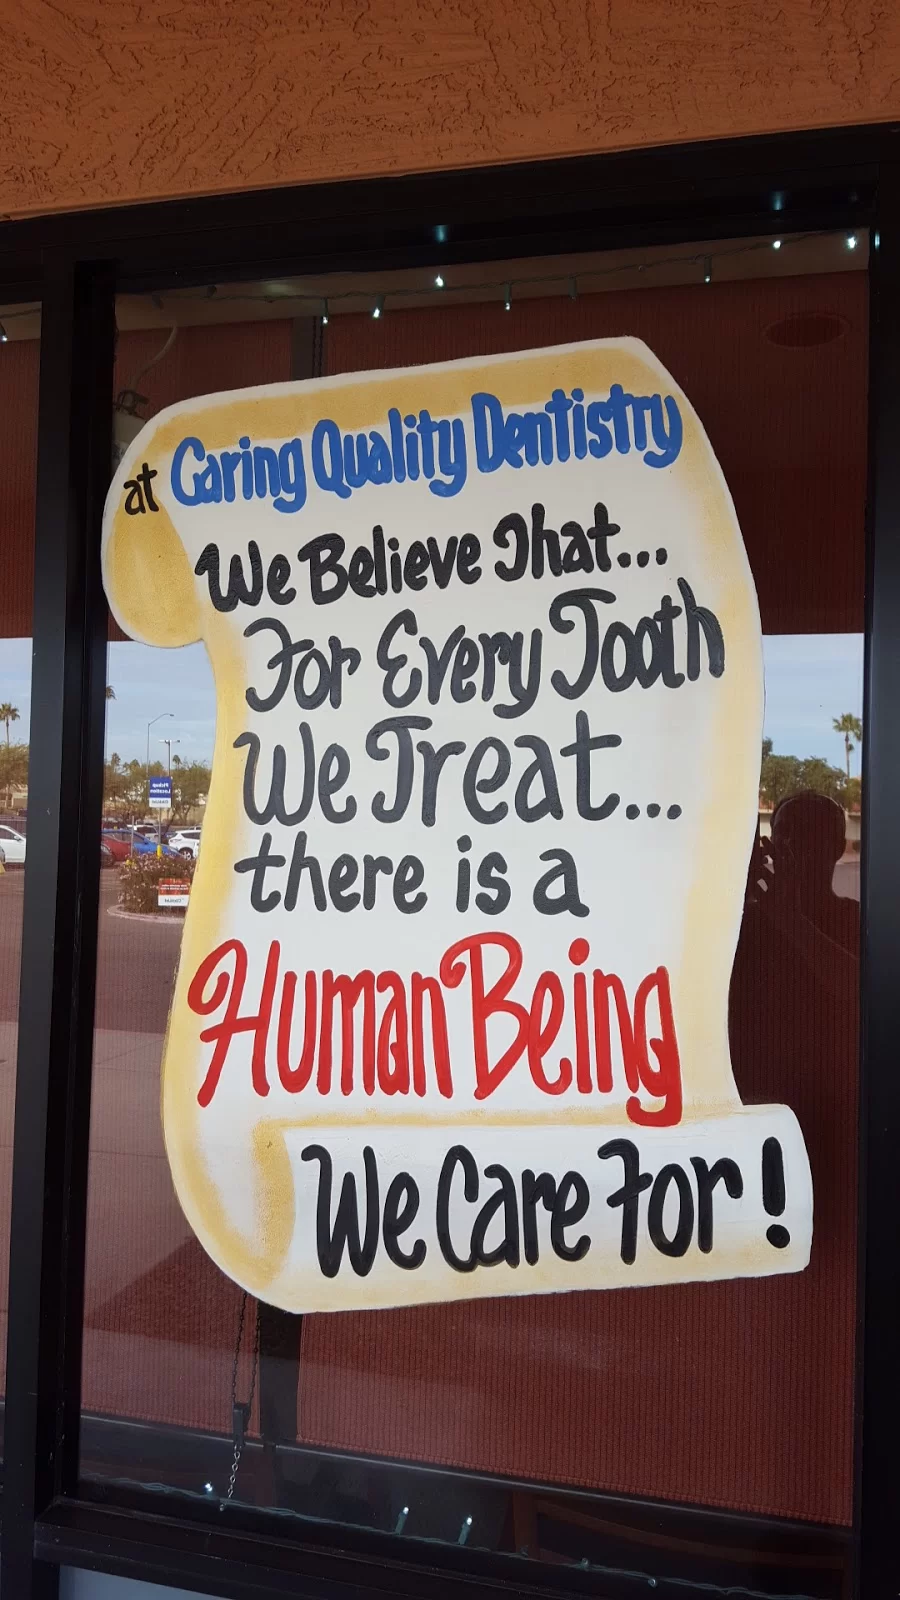 at Caring Quality Dentistry
We Believe That...
For Every Tooth
We Treat...
there is a
Human Being
We Care For!
Pickup
Location